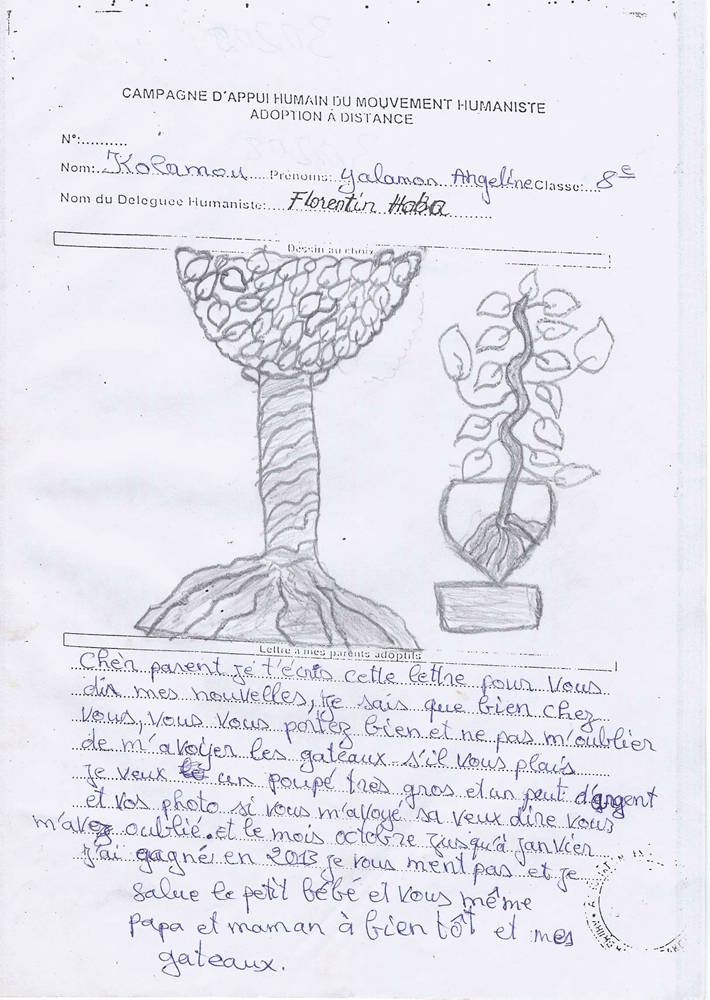 CAMPAGNE D'APPUI HUMAIN DU MOUVEMENT HUMANISTE
ADOPTION À DISTANCE
N°:..........
Nom: Kolamou Prénoms: Yalamon Angeline Classe: 8e
Nom du Deleguée Humaniste: Florentin Haba
Dessin au choix
Lettre à mes parents adoptifs
Chèr parent je t'écris cette lettre pour vous
dis mes nouvelles, je sais que bien chez
vous, vous vous portez bien et ne pas m'oublier
de m'avoyer les gateaux s'il vous plais
Je veux un poupé très gros et un peut d'argent
et vos photo si vous m'avoyé sa veux dire vous
m'avez oublié. et le mois octobre jusqu'à janvier
j'ai gagné en 2013 je vous ment pas et je
salue le petit bébé et vous même
papa et maman à bien tôt et mes
gateaux.